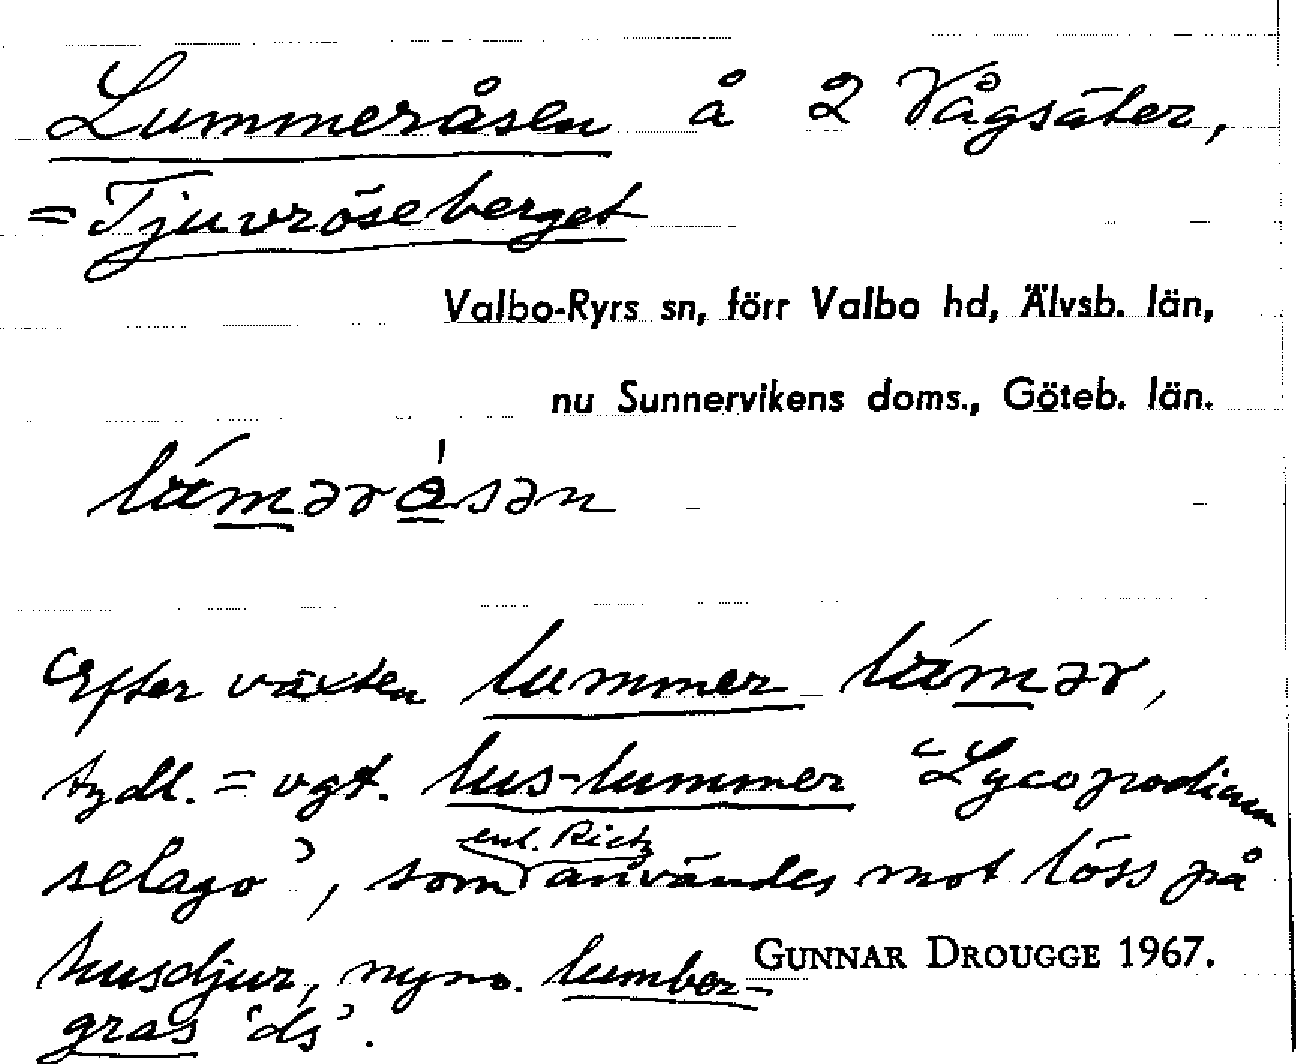 Lummeråsen å 2 Vågsäter,
= Tjuvröseberget
Valbo-Ryrs sn, förr Valbo hd, Älvsb. län,
nu Sunnervikens doms., Göteb. län.
Efter växten lummer,
tydl. = vgt. lus-lummer 'Lycopodium
selago', som enl. Rietz användes mot löss på
husdjur, nyno. lumber-
gras 'ds'.
GUNNAR DROUGGE 1967.